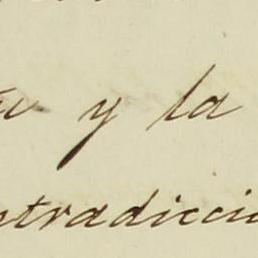 y la
ntradicci